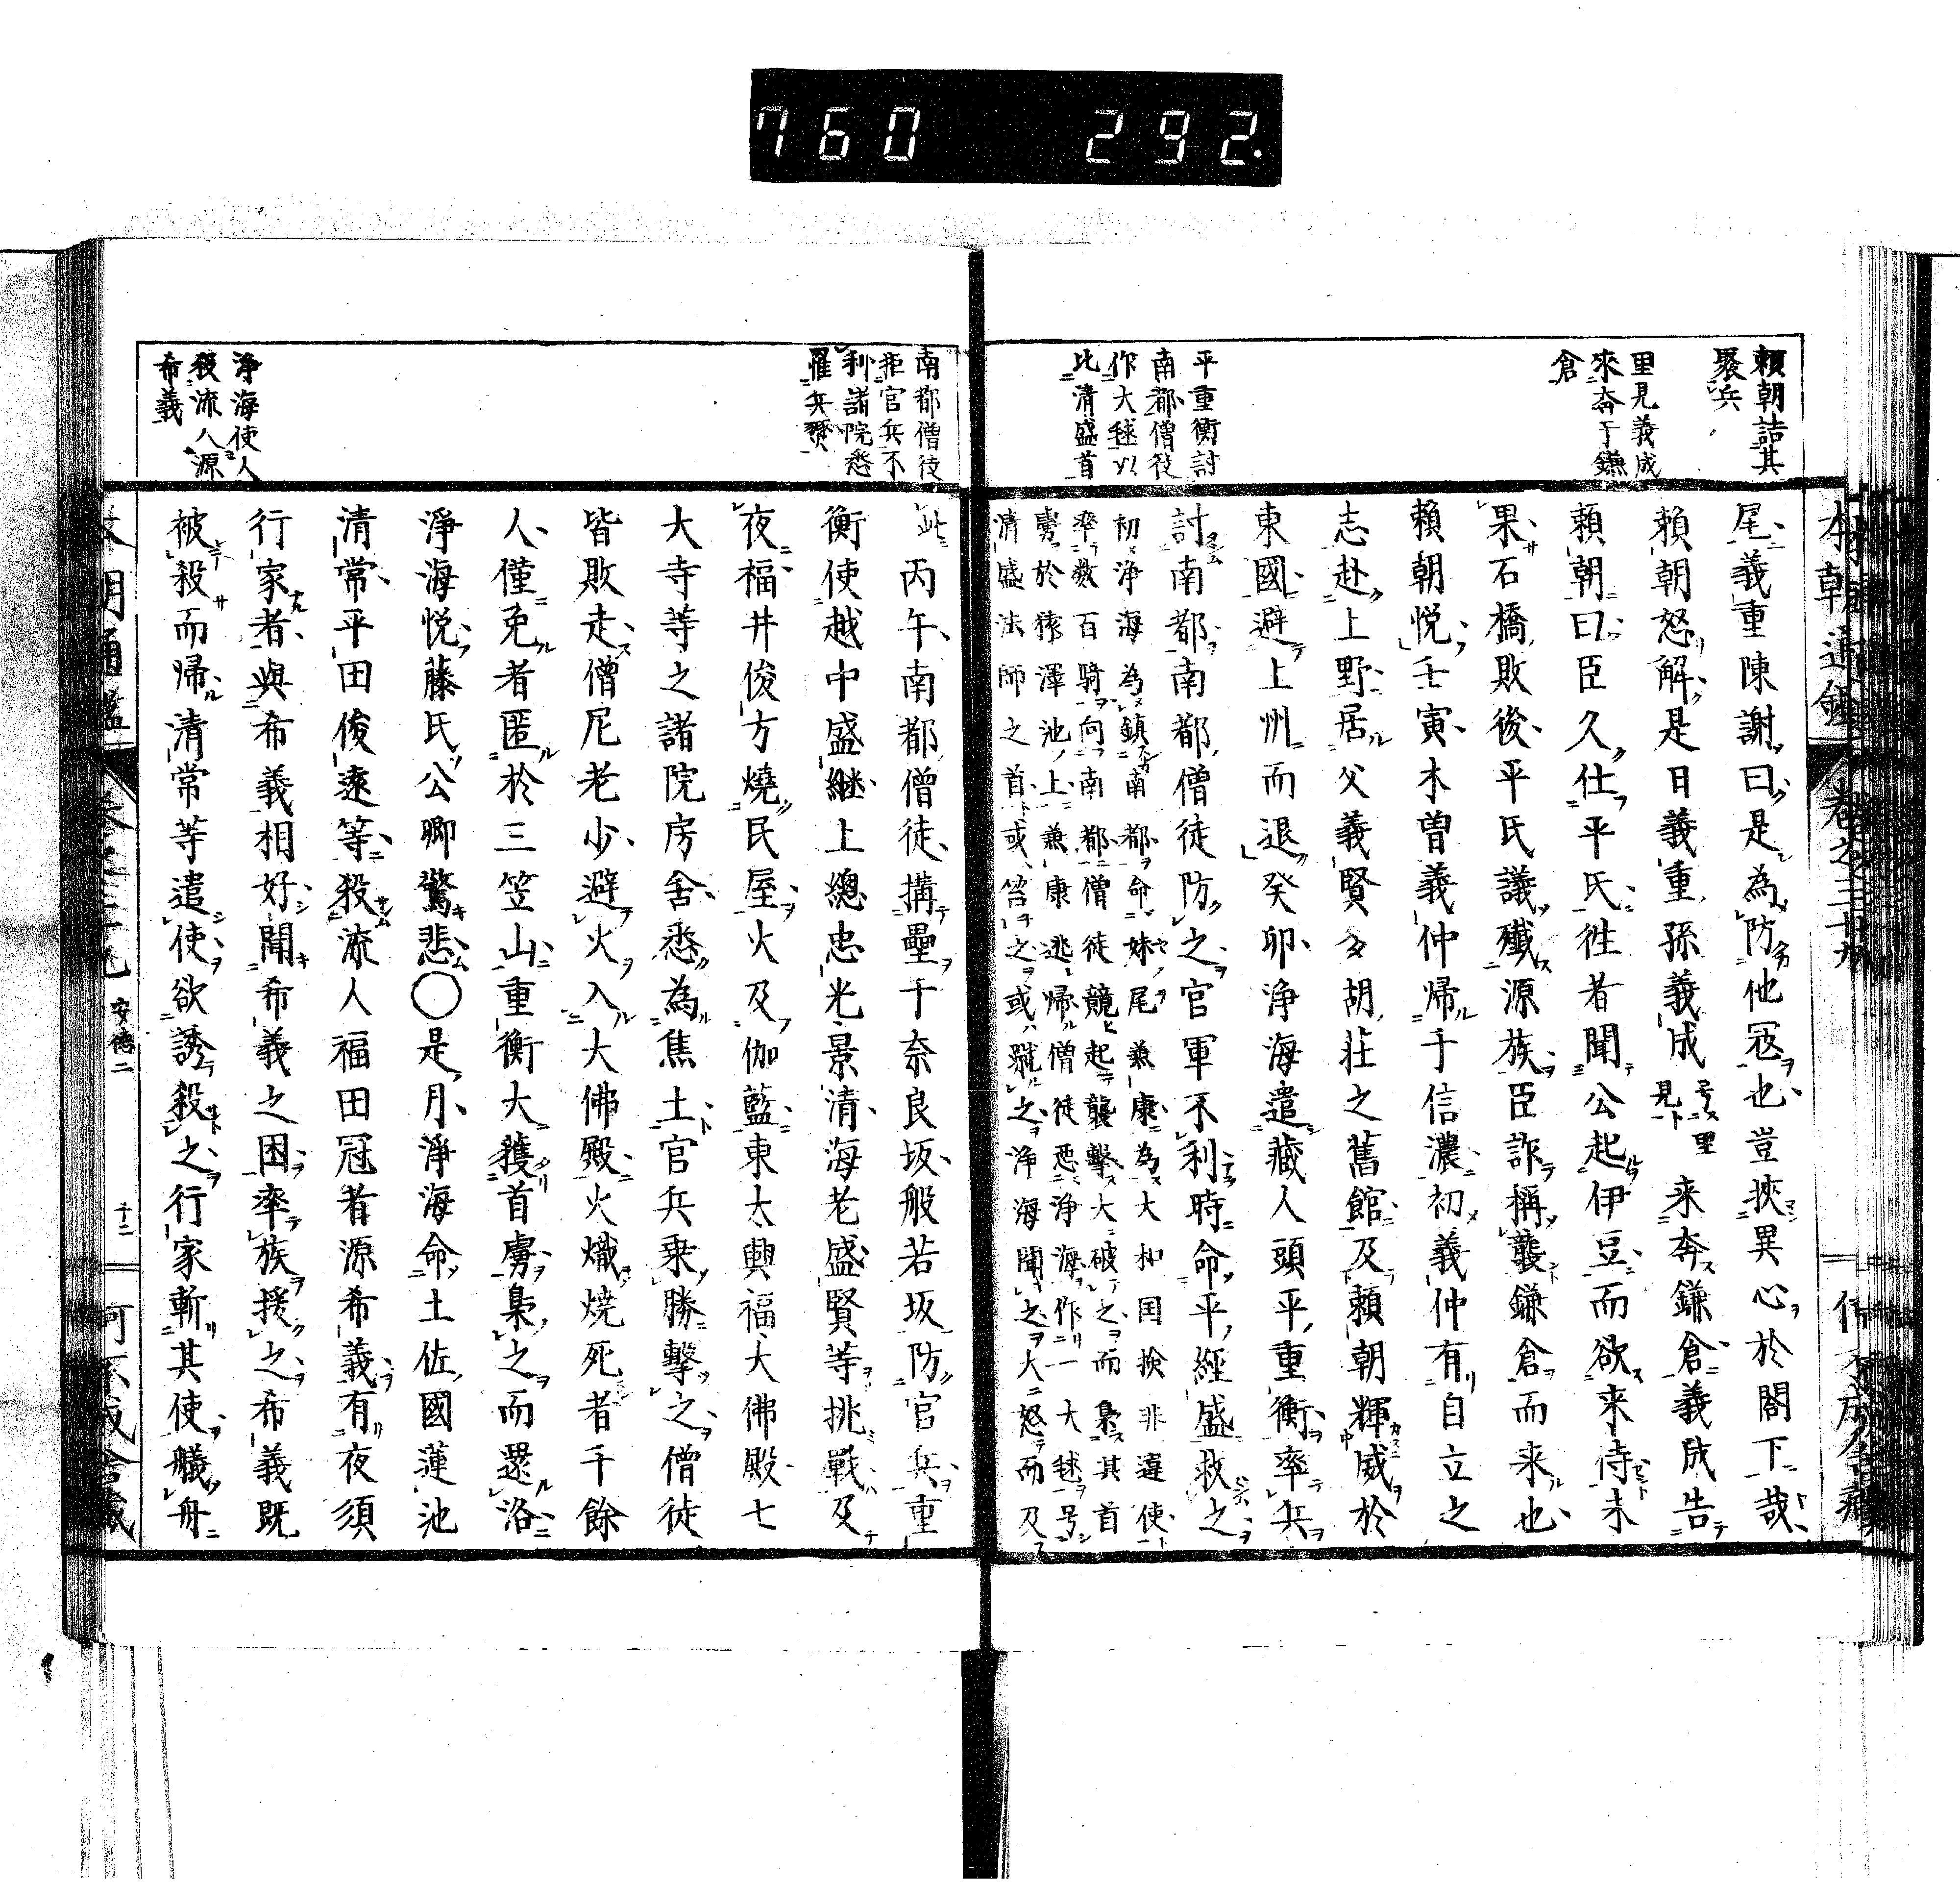 760 292.
本朝通鑑 卷之三十九
賴朝詰其
聚兵
里見義成
來奔于鎌
倉
平重衡討
南都僧徒
作大毬以
比清盛首
尾義重陳謝曰是為防他冦也豈挾異心於閤下哉
賴朝怒解是日義重孫義成号里見来奔鎌倉義成告
賴朝曰臣久仕平氏徃者聞公起伊豆而欲来侍未
果石橋敗後平氏議殲源族臣詐稱襲鎌倉而来也
賴朝悦壬寅木曽義仲帰于信濃初義仲有自立之
志赴上野居父義賢多胡莊之舊館及賴朝輝威於
東國避上州而退癸卯浄海遣藏人頭平重衡率兵
討南都南都僧徒防之官軍不利時命平經盛救之
初浄海為鎮南都命妹尾兼康為大和国撿非違使
率数百騎向南都僧徒競起襲擊大破之而梟其首
於猿澤池上兼康逃帰僧徒悪浄海作一大毬号
清盛法師之首或笞之或蹴之浄海聞之大怒而及
南都僧徒
拒官兵不
利諸院悉
罹兵燹
浄海使人
殺流人源
希義
此丙午南都僧徒搆壘于奈良坂般若坂防官兵重
衡使越中盛継上總忠光景清海老盛賢等挑戰及
夜福井俊方燒民屋火及伽藍東大興福大佛殿七
大寺等之諸院房舎悉為焦土官兵乗勝擊之僧徒
皆敗走僧尼老少避火入大佛殿火熾焼死者千餘
人僅免者匿於三笠山重衡大獲首虜梟之而還洛
淨海悦藤氏公卿驚悲○是月淨海命土佐國蓮池
清常平田俊遠等殺流人福田冠者源希義有夜須
行家者與希義相好聞希義之困率族援之希義既
被殺而帰清常等遣使欲誘殺之行家斬其使艤舟
安德二 十二